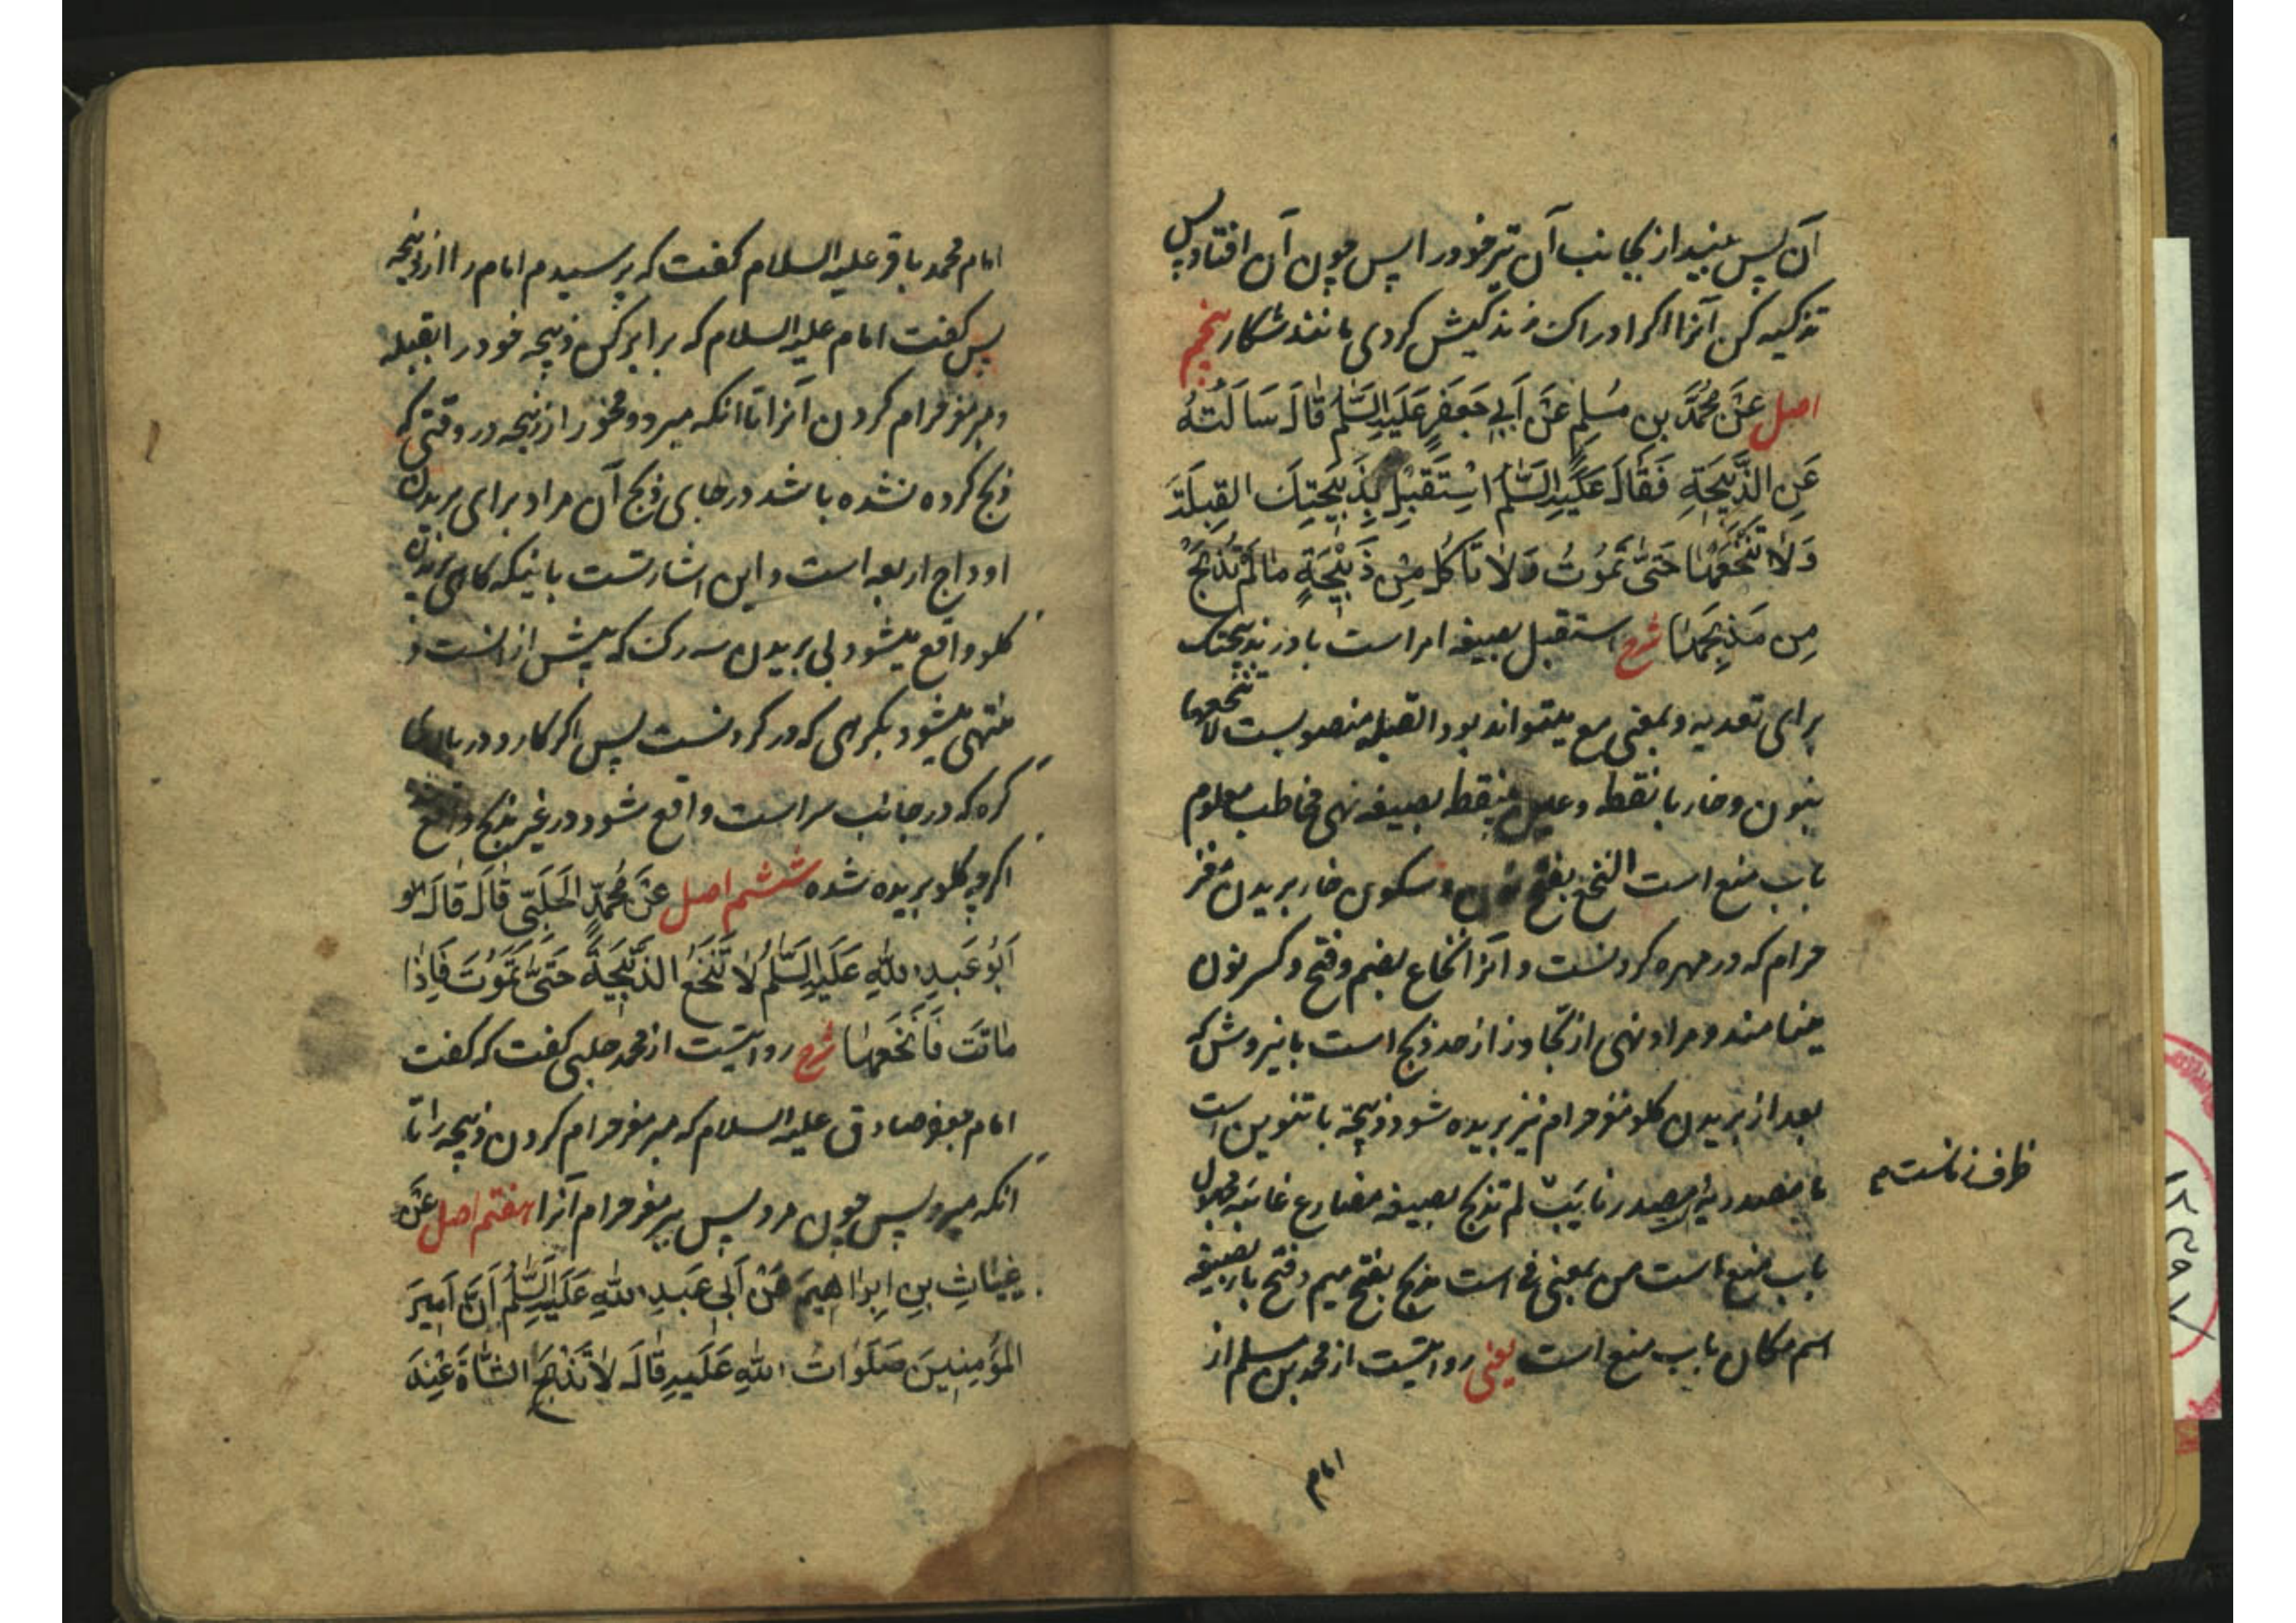 آن پس بینداز بجانب آن تیر خود را پس چون آن افتاد پس
تذکیه کن آنرا اکر ادراک زندکیش کردی مانند شکار پنجم
اصل عَنْ مُحَمَّدِ بنِ مُسْلِمٍ عَنْ أَبِي جَعْفَرٍ عَلَيْهِ السَّلٰمُ قَالَ سَأَلْتُهُ
عَنِ الذَّبِيحَةِ فَقَالَ عَلَيْهِ السَّلٰمُ اسْتَقْبِلْ بِذَبِيحَتِكَ القِبلَةَ
وَلَا تَنْخَعْهَا حَتّٰى تَمُوتَ وَلَا تَأكُل مِنْ ذَبِيْحَةٍ مَا لَمْ تُذْبَحْ
مِن مَذبَحِهَا شرح استقبل بصیغه امر است با در بذبیحتک
برای تعدیه و بمعنی مع میتواند بود القبله منصوبست لا تنخعها
بنون و خاء با نقطه و عین بینقطه بصیغه نهی مخاطب معلوم
باب منع است النخع بفتح نون و سکون خاء بریدن مغز
حرام که در مهره کردنست و آنرا نخاع بضم و فتح و کسر نون
مینامند و مراد نهی از تجاوز از حد ذبح است باین روش که
بعد از بریدن کلو مغز حرام نیز بریده شود ذبیحة با تنوین است
ما مصدریه مصدر نایب لم تذبح بصیغه مضارع غایبه مجهول
ظرف زمانست
باب منع است من بمعنی فی است مذبح بفتح میم و فتح باء بصیغه
اسم مکان باب منع است یعنی روایتست از محمد بن مسلم از
امام
امام محمد باقر علیه السلام کفت که پرسیدم امام را از ذبیحه
پس کفت امام علیه السلام که برابر کن ذبیحه خود را بقبله
و مبر مغز حرام کردن آنرا تا آنکه میرد و مخور از ذبیحه در وقتی که
ذبح کرده نشده باشد در جای ذبح آن مراد برای بریدن
اوداج اربعه است و این اشارتست باینکه کاهی بریدن
کلو واقع میشود بی بریدن سه رک که پیش از انست و
منتهی میشود بکرهی که در کردنست پس اکر کارد در بالای
کره که در جانب سر است واقع شود در غیر مذبح واقع
اکرچه کلو بریده شده ششم اصل عَنْ مُحَمَّدٍ الحَلَبِّى قَالَ قَالَ
اَبُو عَبدِ اللهِ عَلَيْهِ السَّلٰمُ لَا تَنْخَعِ الذَّبِيحَةَ حَتّٰى تَمُوتَ فَإِذَا
مَاتَت فَانْخَعْهَا شرح روایتست از محمد حلبی کفت که کفت
امام جعفر صادق علیه السلام که مبر مغز حرام کردن ذبیحه را تا
انکه میرد پس چون مرد پس ببر مغز حرام آنرا هفتم اصل عَنْ
غِيَاثِ بنِ اِبرَاهِيمَ عَنْ اَبِى عَبدِ اللهِ عَلَيْهِ السَّلٰمُ اَنَّ اَمِيرَ
المُؤمِنِينَ صَلَوَاتُ اللهِ عَلَيهِ قَالَ لَا تَذْبَحِ الشَّاةَ عِنْدَ